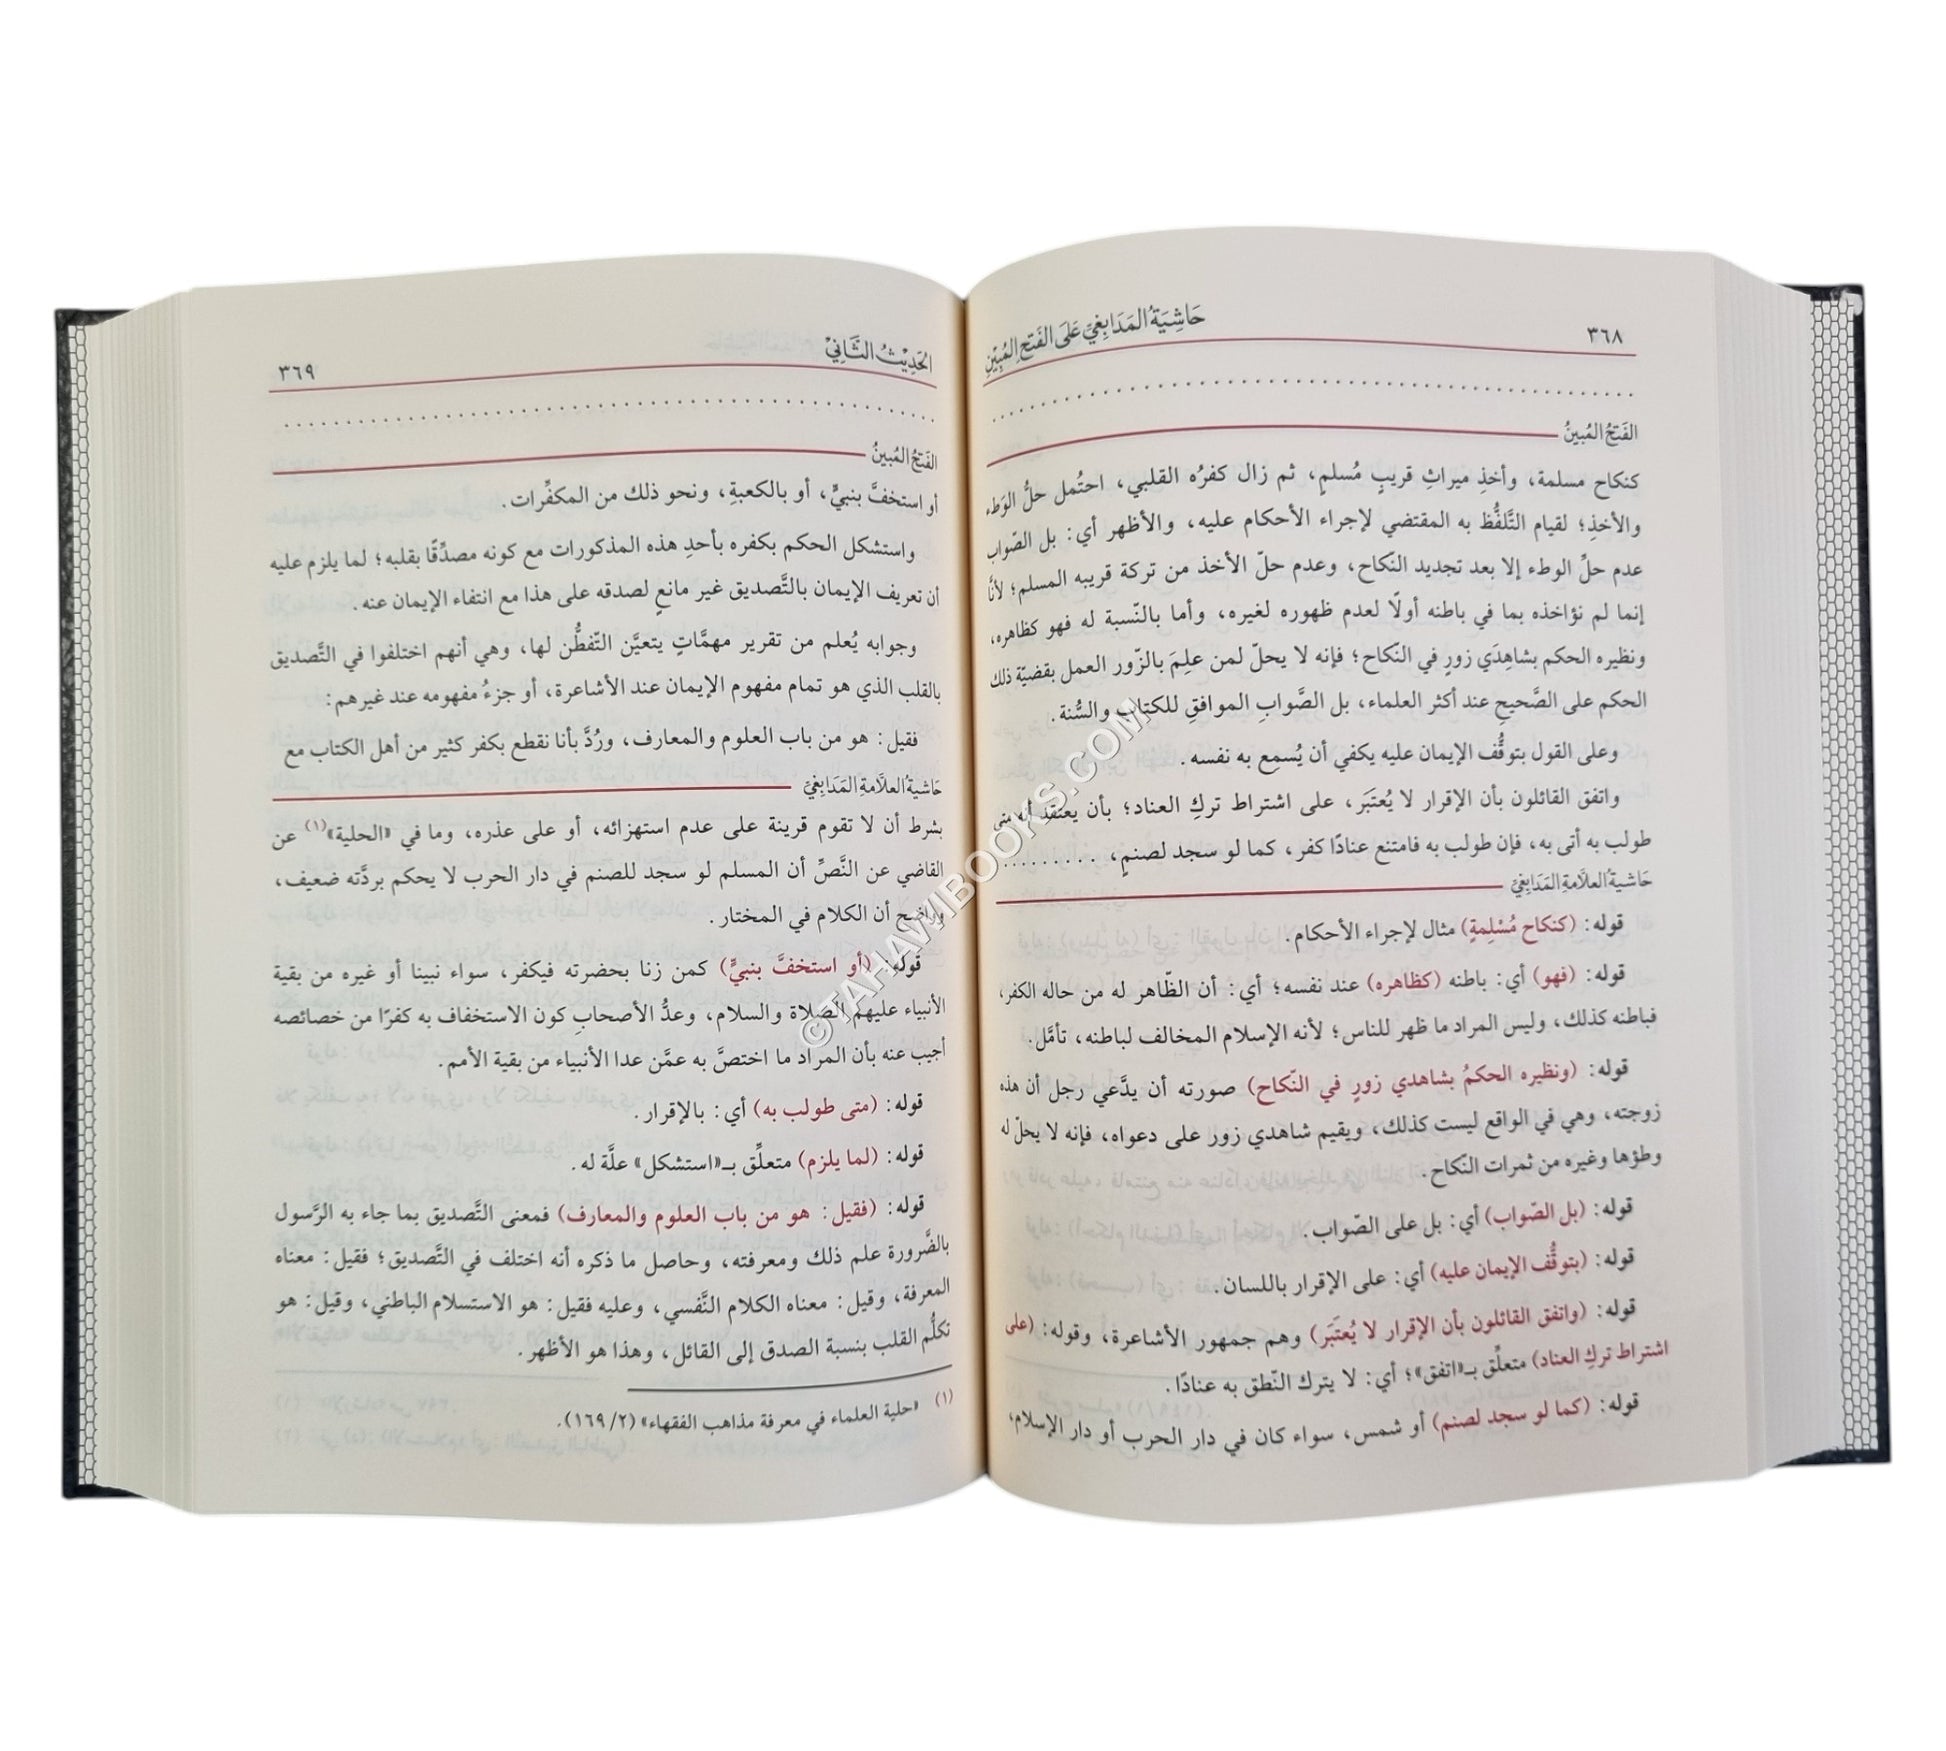 ٣٦٨
حَاشِيَةُ المَدَابِغِيِّ عَلَى الفَتْحِ المُبِيْنِ
الفَتْحُ المُبِينُ
كنكاح مسلمة، وأخذِ ميراثِ قريبٍ مُسلمٍ، ثم زال كفرُه القلبي، احتُمل حلُّ الوَطء
والأخذِ؛ لقيام التَّلفُّظ به المقتضي لإجراء الأحكام عليه، والأظهر أي: بل الصّواب
عدم حلِّ الوطء إلا بعد تجديد النّكاح، وعدم حلّ الأخذ من تركة قريبه المسلم؛ لأنَّا
إنما لم نؤاخذه بما في باطنه أولًا لعدم ظهوره لغيره، وأما بالنّسبة له فهو كظاهره،
ونظيره الحكم بشاهِدَي زورٍ في النّكاح؛ فإنه لا يحلّ لمن علِمَ بالزّور العمل بقضيّة ذلك
الحكم على الصَّحيحِ عند أكثر العلماء، بل الصَّوابِ الموافقِ للكتاب والسُّنة.
وعلى القول بتوقُّف الإيمان عليه يكفي أن يُسمِع به نفسه.
واتفق القائلون بأن الإقرار لا يُعتَبَر، على اشتراط تركِ العناد؛ بأن يعتقد أنه متى
طولب به أتى به، فإن طولب به فامتنع عنادًا كفر، كما لو سجد لصنمٍ، .........
حَاشيةُ العلاَّمةِ المَدَابِغيِّ
قوله: (كنكاح مُسْلِمةٍ) مثال لإجراء الأحكام.
قوله: (فهو) أي: باطنه (كظاهره) عند نفسه؛ أي: أن الظّاهر له من حاله الكفر،
فباطنه كذلك، وليس المراد ما ظهر للناس؛ لأنه الإسلام المخالف لباطنه، تأمَّل.
قوله: (ونظيره الحكمُ بشاهدي زورٍ في النّكاح) صورته أن يدَّعي رجل أن هذه
زوجته، وهي في الواقع ليست كذلك، ويقيم شاهدي زور على دعواه، فإنه لا يحلّ له
وطؤها وغيره من ثمرات النّكاح.
قوله: (بل الصّواب) أي: بل على الصّواب.
قوله: (بتوقُّف الإيمان عليه) أي: على الإقرار باللسان.
قوله: (واتفق القائلون بأن الإقرار لا يُعتَبَر) وهم جمهور الأشاعرة، وقوله: (على
اشتراط تركِ العناد) متعلِّق بـ«اتفق»؛ أي: لا يترك النّطق به عنادًا.
قوله: (كما لو سجد لصنم) أو شمس، سواء كان في دار الحرب أو دار الإسلام،
الحَدِيْثُ الثَّانِيْ
٣٦٩
الفَتْحُ المُبينُ
أو استخفَّ بنبيٍّ، أو بالكعبةِ، ونحو ذلك من المكفِّرات.
واستشكل الحكم بكفره بأحدِ هذه المذكورات مع كونه مصدِّقًا بقلبه؛ لما يلزم عليه
أن تعريف الإيمان بالتَّصديق غير مانعٍ لصدقه على هذا مع انتفاء الإيمان عنه.
وجوابه يُعلم من تقرير مهمَّاتٍ يتعيَّن التّفطُّن لها، وهي أنهم اختلفوا في التَّصديق
بالقلب الذي هو تمام مفهوم الإيمان عند الأشاعرة، أو جزءُ مفهومه عند غيرهم:
فقيل: هو من باب العلوم والمعارف، ورُدَّ بأنا نقطع بكفر كثير من أهل الكتاب مع
حَاشيةُ العلاَّمةِ المَدَابِغيِّ
بشرط أن لا تقوم قرينة على عدم استهزائه، أو على عذره، وما في «الحلية»(١) عن
القاضي عن النَّصِّ أن المسلم لو سجد للصنم في دار الحرب لا يحكم بردَّته ضعيف،
وواضح أن الكلام في المختار.
قوله: (أو استخفَّ بنبيٍّ) كمن زنا بحضرته فيكفر، سواء نبينا أو غيره من بقية
الأنبياء عليهم الصلاة والسلام، وعدُّ الأصحابِ كون الاستخفاف به كفرًا من خصائصه
أجيب عنه بأن المراد ما اختصَّ به عمَّن عدا الأنبياء من بقية الأمم.
قوله: (متى طولب به) أي: بالإقرار.
قوله: (لما يلزم) متعلِّق بـ«استشكل» علَّة له.
قوله: (فقيل: هو من باب العلوم والمعارف) فمعنى التَّصديق بما جاء به الرَّسول
بالضَّرورة علم ذلك ومعرفته، وحاصل ما ذكره أنه اختلف في التَّصديق؛ فقيل: معناه
المعرفة، وقيل: معناه الكلام النَّفسي، وعليه فقيل: هو الاستسلام الباطني، وقيل: هو
تكلُّم القلب بنسبة الصدق إلى القائل، وهذا هو الأظهر.
(١) «حلية العلماء في معرفة مذاهب الفقهاء» (٢/ ١٦٩).
© TAHAWIBOOKS.COM